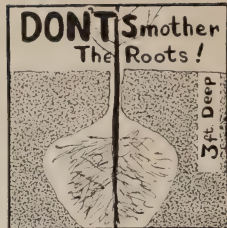 DON'T Smother
The Roots!
3ft Deep